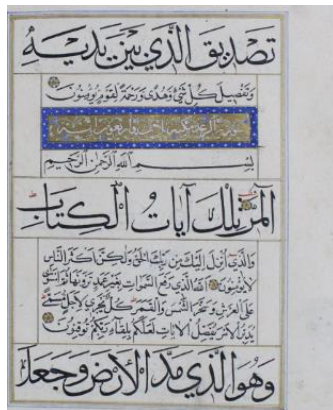 تصديق الذي بين يديه
وتفصيل كل شيء وهدى ورحمة لقوم يؤمنون
سورة الرعد
بسم الله الرحمن الرحيم
المر تلك آيات الكتاب
والذي أنزل إليك من ربك الحق ولكن أكثر الناس
لا يؤمنون الله الذي رفع السموات بغير عمد ترونها ثم استوى
على العرش وسخر الشمس والقمر كل يجري لأجل مسمى
يدبر الأمر يفصل الآيات لعلكم بلقاء ربكم توقنون
وهو الذي مد الأرض وجعل